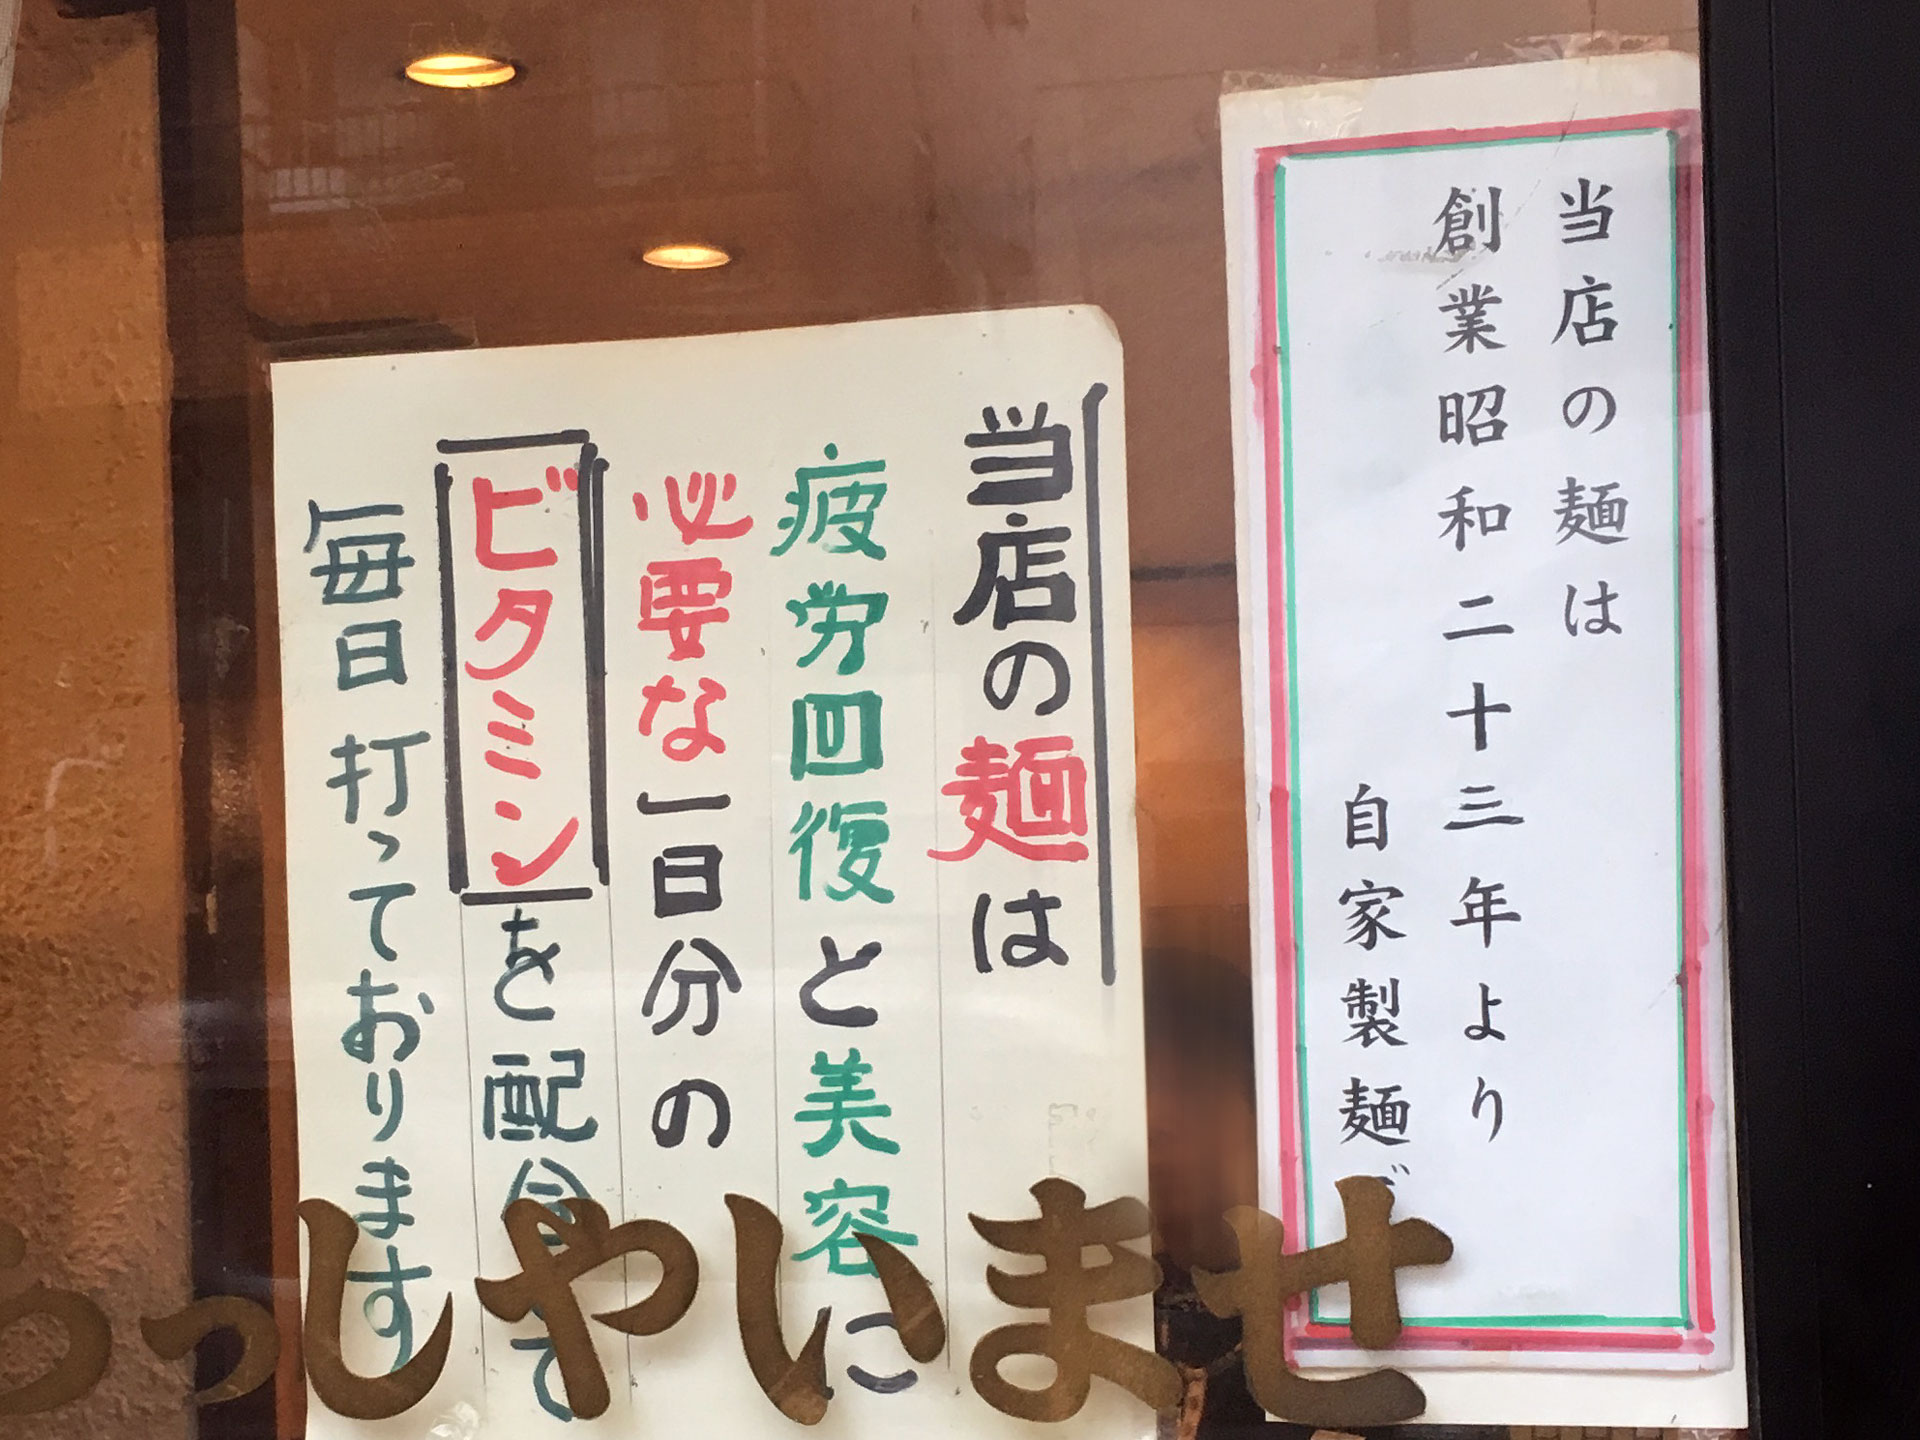 当店の麺は
創業昭和二十三年より
自家製麺
当店の麺は
疲労回復と美容に
必要な一日分の
ビタミンを配合して
毎日打っております
らっしゃいませ